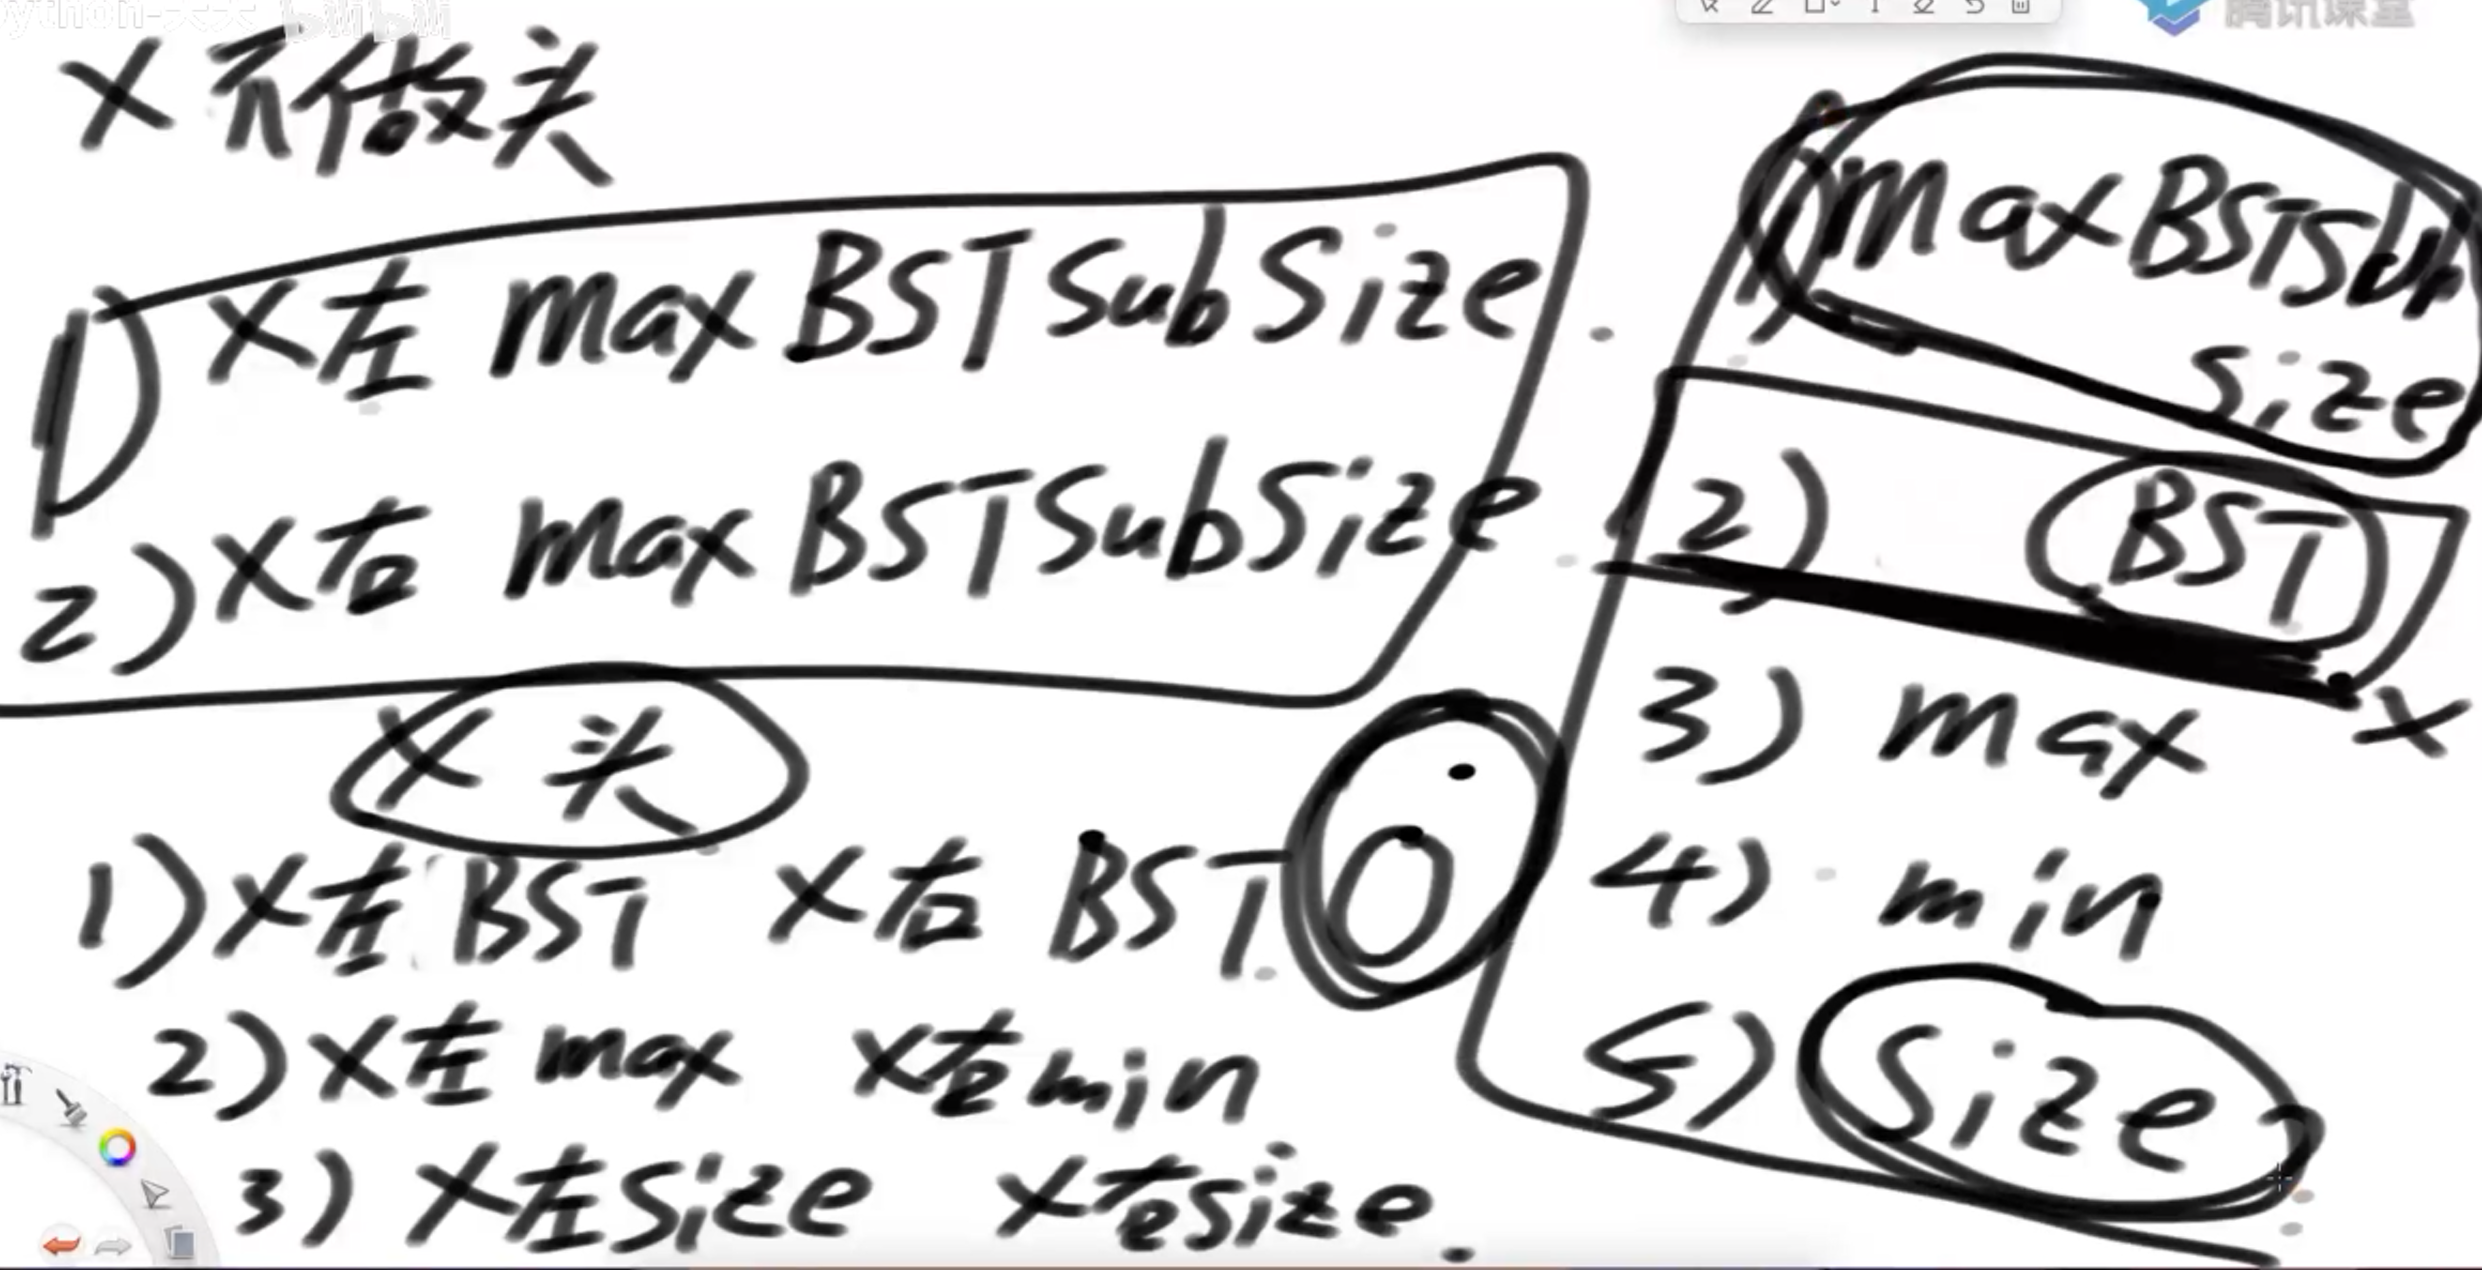 ython-天天 bilibili
腾讯课堂
X不做头
1) X左 maxBSTSubSize
2) X右 maxBSTSubSize
X头
1) X左 BST X右 BST
2) X左 max X右 min
3) X左 size X右 size.
1) maxBSTSub
size
2) BST
3) max
4) min
5) Size